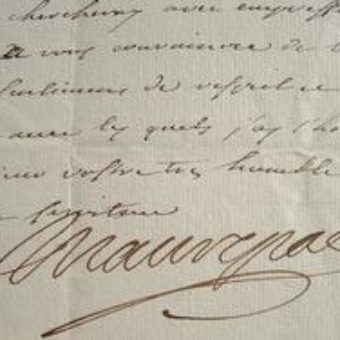 chercheray avec empress
a vous convaincre de l
sentimens de respect e
avec lesquels j'ay l'ho
vostre tres humble
serviteur
Maurepas